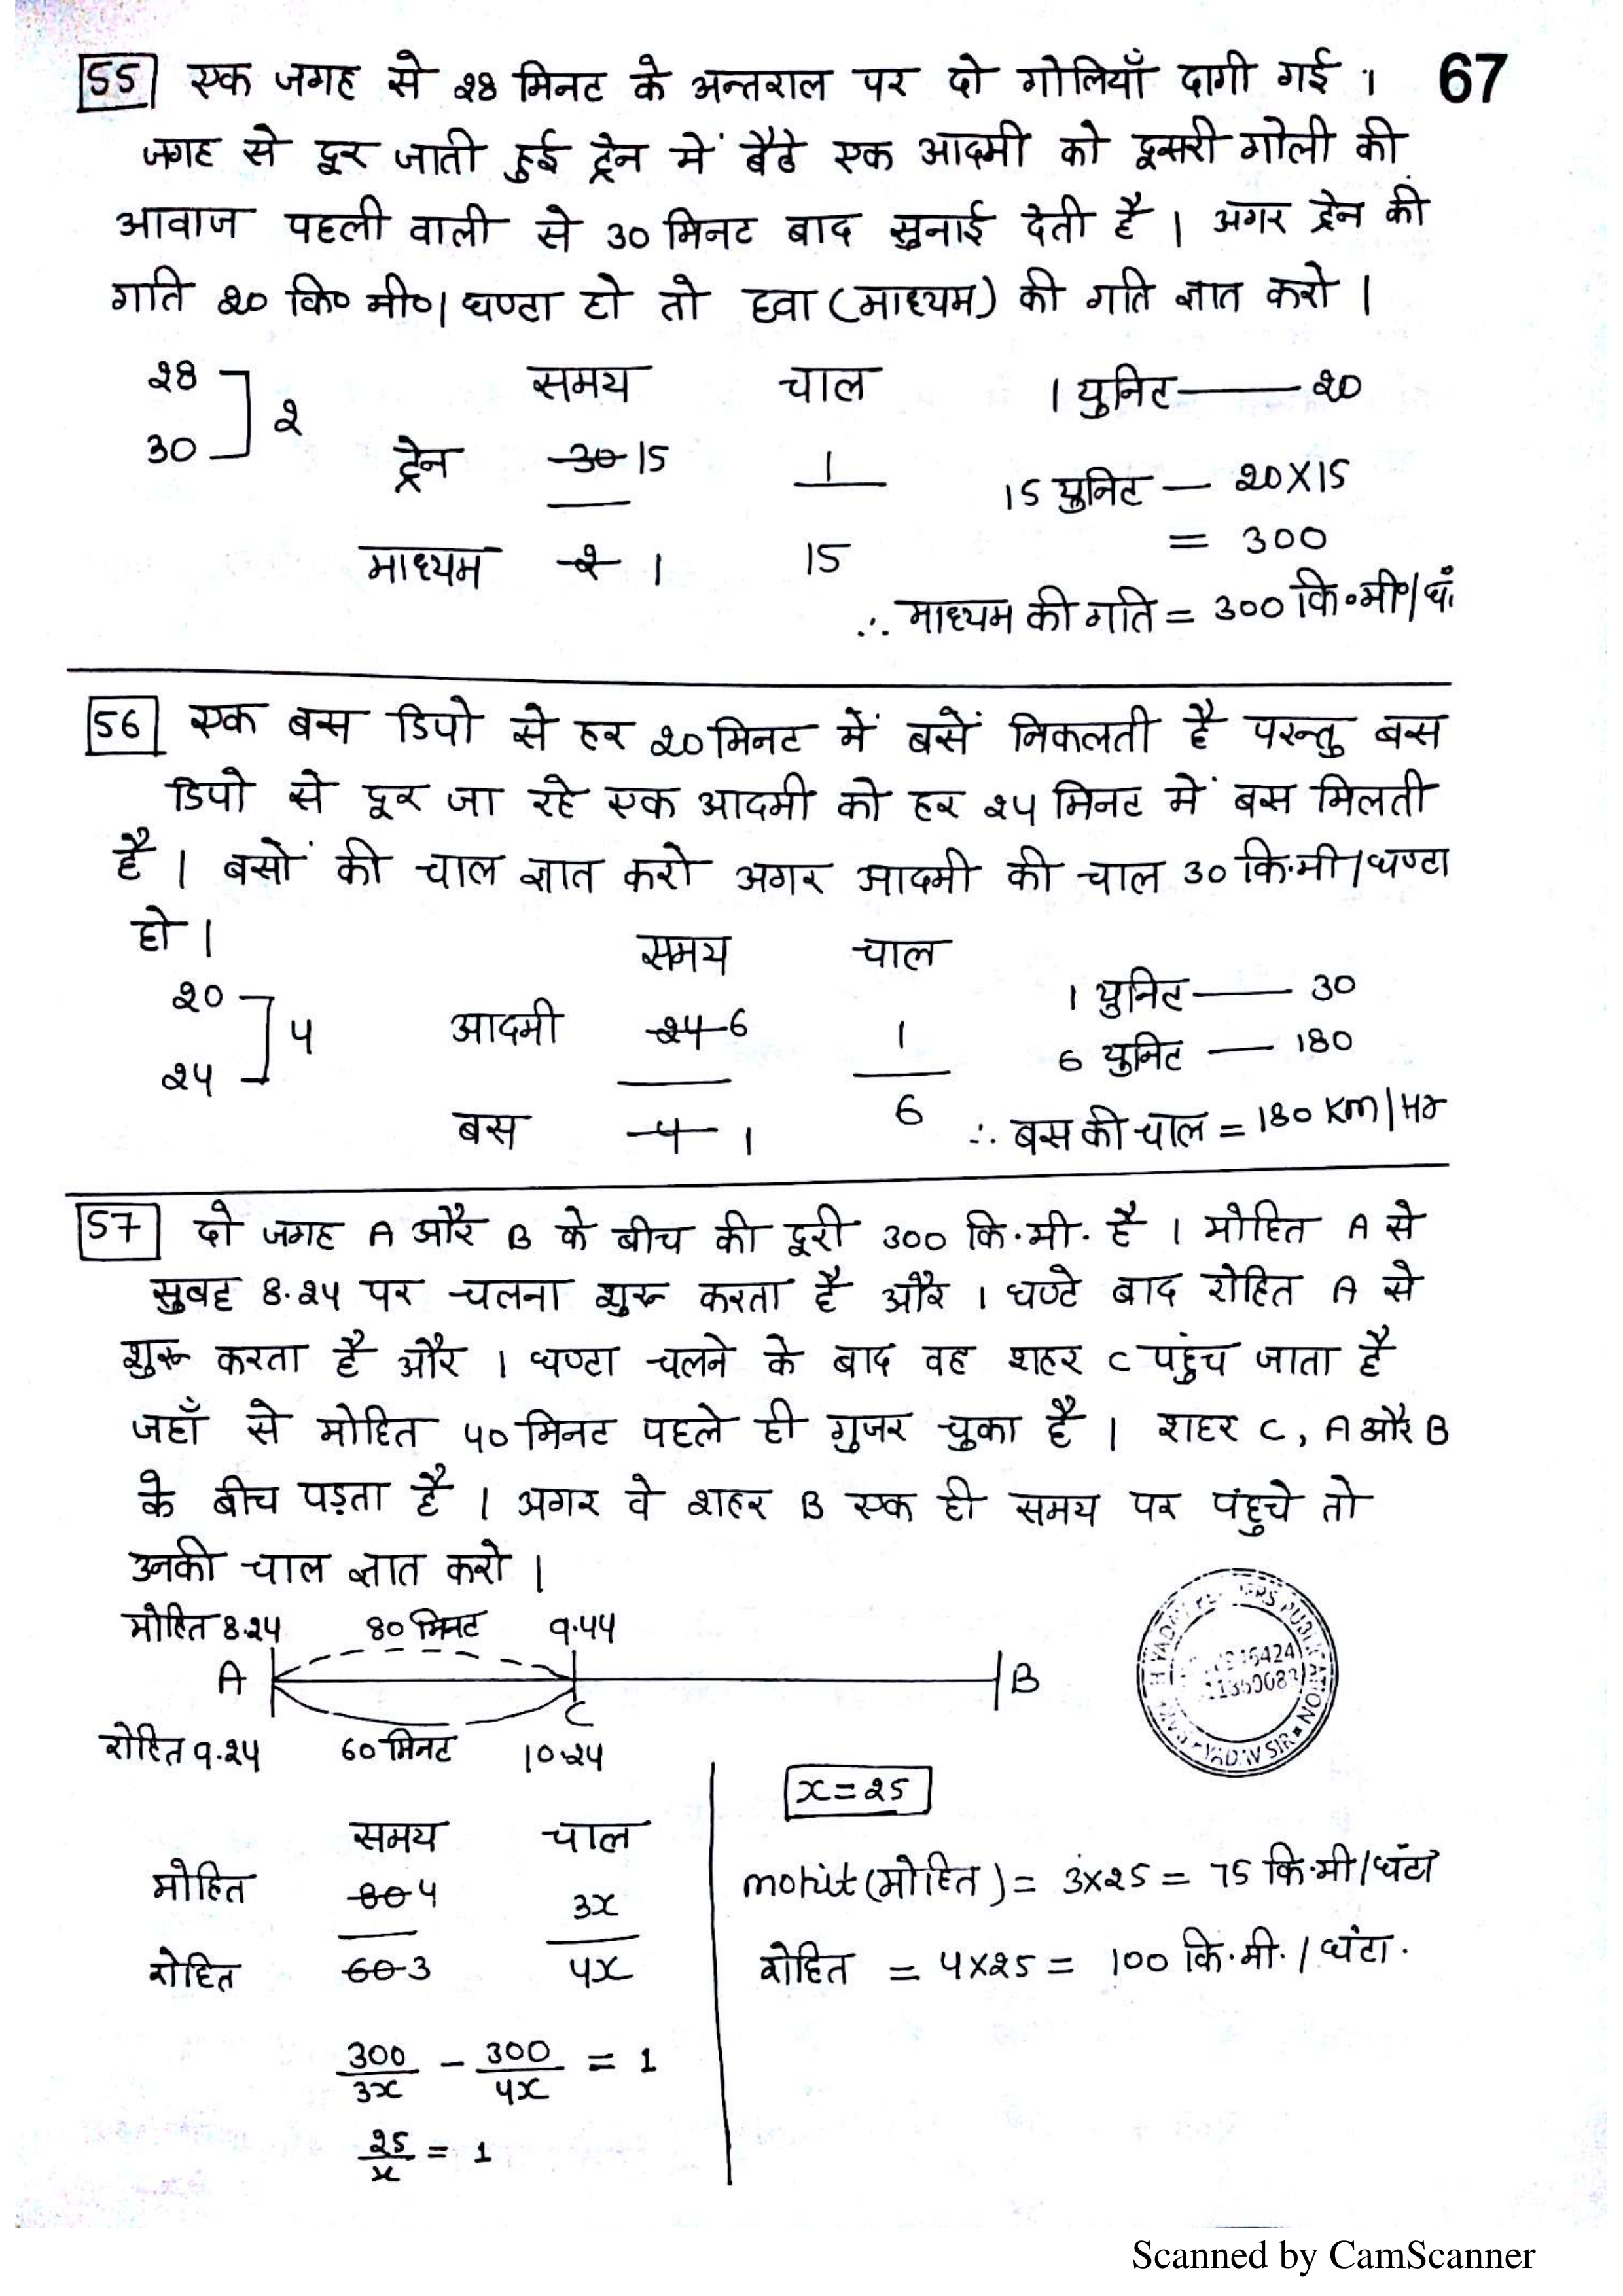 55 एक जगह से 28 मिनट के अन्तराल पर दो गोलियाँ दागी गई । 67
जगह से दूर जाती हुई ट्रेन में बैठे एक आदमी को दूसरी गोली की
आवाज पहली वाली से 30 मिनट बाद सुनाई देती है । अगर ट्रेन की
गति 20 कि० मी०/घण्टा हो तो हवा (माध्यम) की गति ज्ञात करो ।
समय चाल
28
30
2
ट्रेन 30 15 1
माध्यम 2 1 15
1 युनिट — 20
15 युनिट — 20×15
= 300
∴ माध्यम की गति = 300 कि०मी०/घं.
56 एक बस डिपो से हर 20 मिनट में बसें निकलती है परन्तु बस
डिपो से दूर जा रहे एक आदमी को हर 24 मिनट में बस मिलती
है । बसों की चाल ज्ञात करो अगर आदमी की चाल 30 कि.मी/घण्टा
हो ।
समय चाल
20
24
4
आदमी 24 6 1
बस 4 1 6
1 युनिट — 30
6 युनिट — 180
∴ बस की चाल = 180 Km/Hr
57 दो जगह A और B के बीच की दूरी 300 कि.मी. है । मोहित A से
सुबह 8.24 पर चलना शुरू करता है और 1 घण्टे बाद रोहित A से
शुरू करता है और 1 घण्टा चलने के बाद वह शहर C पहुंच जाता है
जहाँ से मोहित 40 मिनट पहले ही गुजर चुका है । शहर C, A और B
के बीच पड़ता है । अगर वे शहर B एक ही समय पर पंहुचे तो
उनकी चाल ज्ञात करो ।
मोहित 8.24 80 मिनट 9.44
A C B
रोहित 9.24 60 मिनट 10.24
समय चाल
मोहित 80 4 3x
रोहित 60 3 4x
300/3x - 300/4x = 1
25/x = 1
x = 25
mohit (मोहित) = 3×25 = 75 कि.मी/घंटा
रोहित = 4×25 = 100 कि.मी./घंटा.
YADAV SIR
Scanned by CamScanner